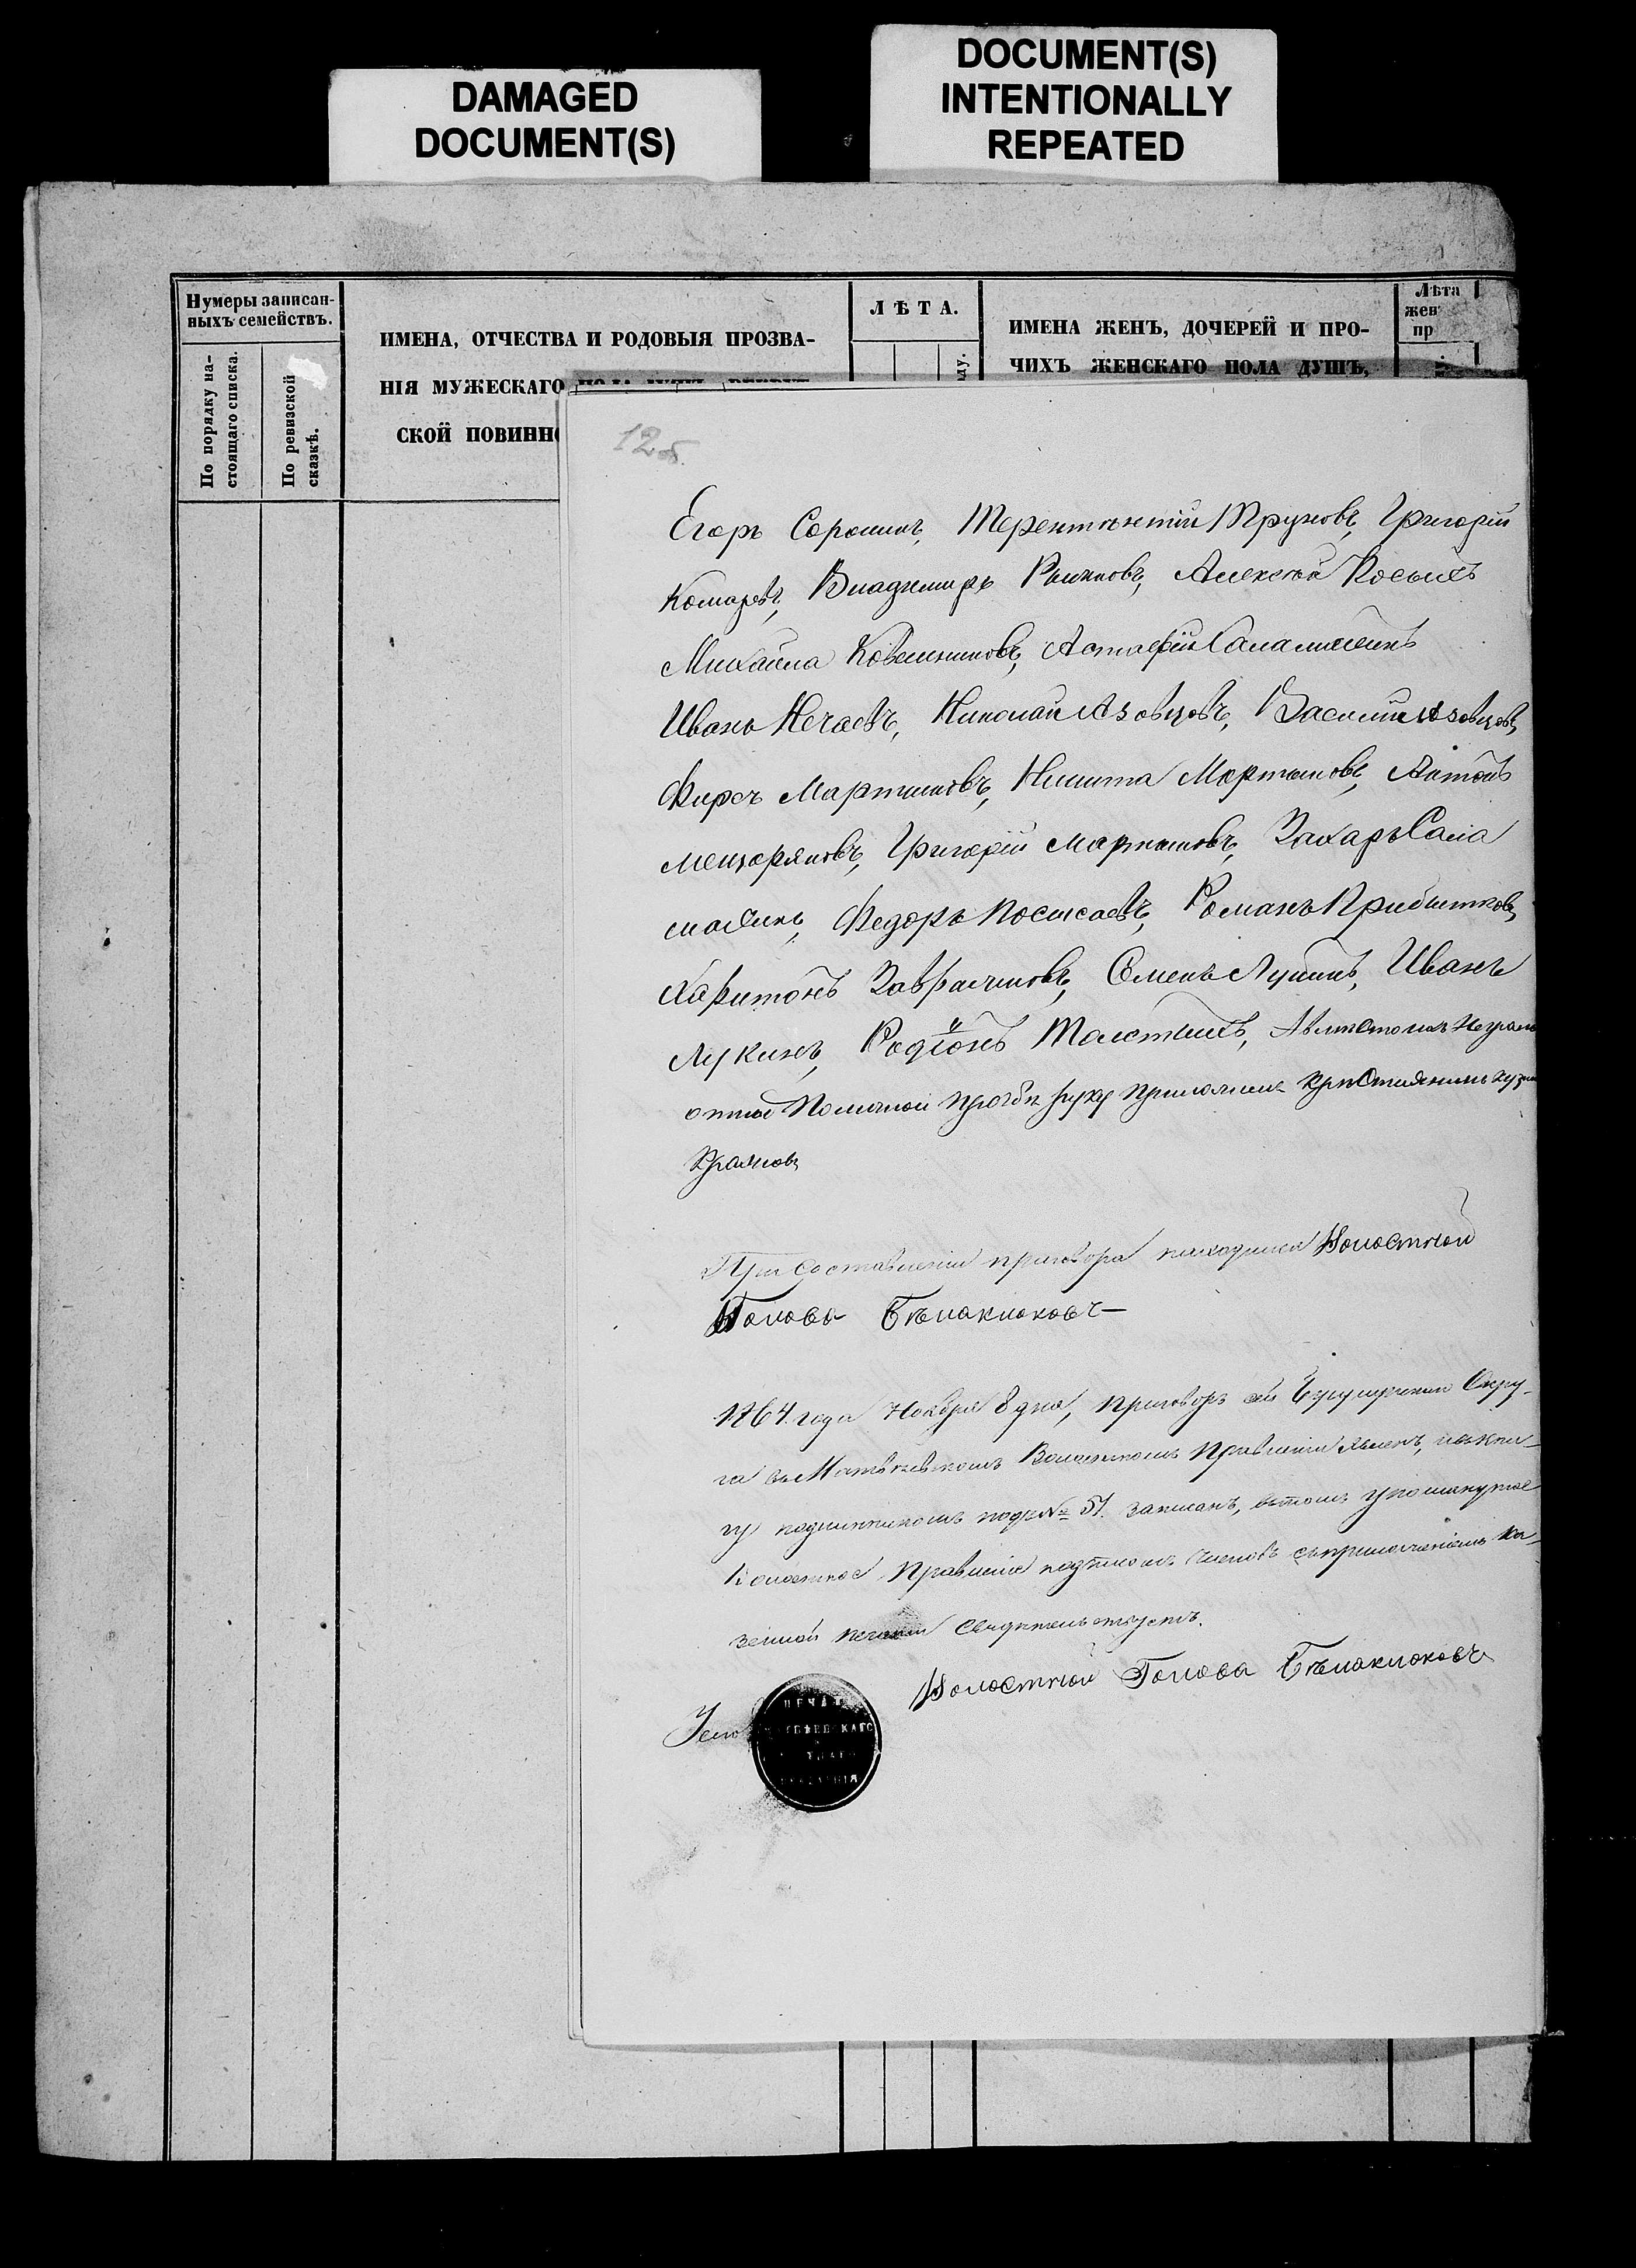 DAMAGED
DOCUMENT(S)
DOCUMENT(S)
INTENTIONALLY
REPEATED
Нумеры записан-
ныхъ семействъ.
По порядку на-
стоящаго списка.
По ревизской
сказкѣ.
ИМЕНА, ОТЧЕСТВА И РОДОВЫЯ ПРОЗВА-
НІЯ МУЖЕСКАГО
СКОЙ ПОВИНН
ЛѢТА.
ИМЕНА ЖЕНЪ, ДОЧЕРЕЙ И ПРО-
ЧИХЪ ЖЕНСКАГО ПОЛА ДУШЪ,
Лѣта
жен
пр
12об.
Егоръ Сорокинъ, Трусовъ, Григорій
Комаревъ, Владимиръ Рычковъ, Алексѣй Косыхъ
Михайла Кожевниковъ, Астафій Саламахинъ
Иванъ Нечаевъ, Николай Азовцовъ, Василій Азовцовъ,
Фирсъ Мартыновъ, Никита Мартыновъ, Антонъ
Мещеряковъ, Григорій Мартыновъ, Захаръ Сала
махинъ, Федоръ Роман Прибытковъ,
Харитонъ Семенъ Лукинъ, Иванъ
Лукинъ, Родіонъ Толстыхъ, неграм
руку приложилъ
При составленіи приговора находился Волостной
Голова Бѣлоклоковъ
1864 года Ноября 8 дня, приговоръ сей Бузулукскаго Окру-
га въ Матвѣевскомъ Волостномъ Правленіи явленъ, и въ кни-
гу подлинникомъ подъ № 51. записанъ, въ томъ упомянутое
Волостное Правленіе подписомъ членовъ съ приложеніемъ ка-
зенной печати свидѣтельствуетъ.
Волостной Голова Бѣлоклоковъ